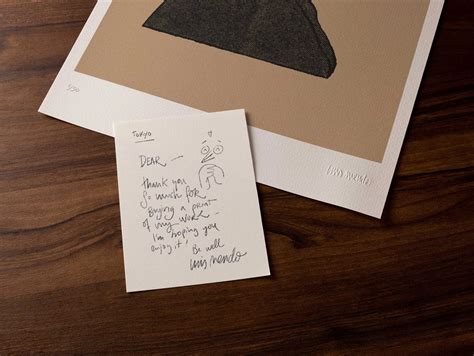 TOKYO
DEAR —
Thank you
so much for
Buying a print
of my work —
I'm hoping you
enjoy it!
Be well
luis mendo
luis mendo